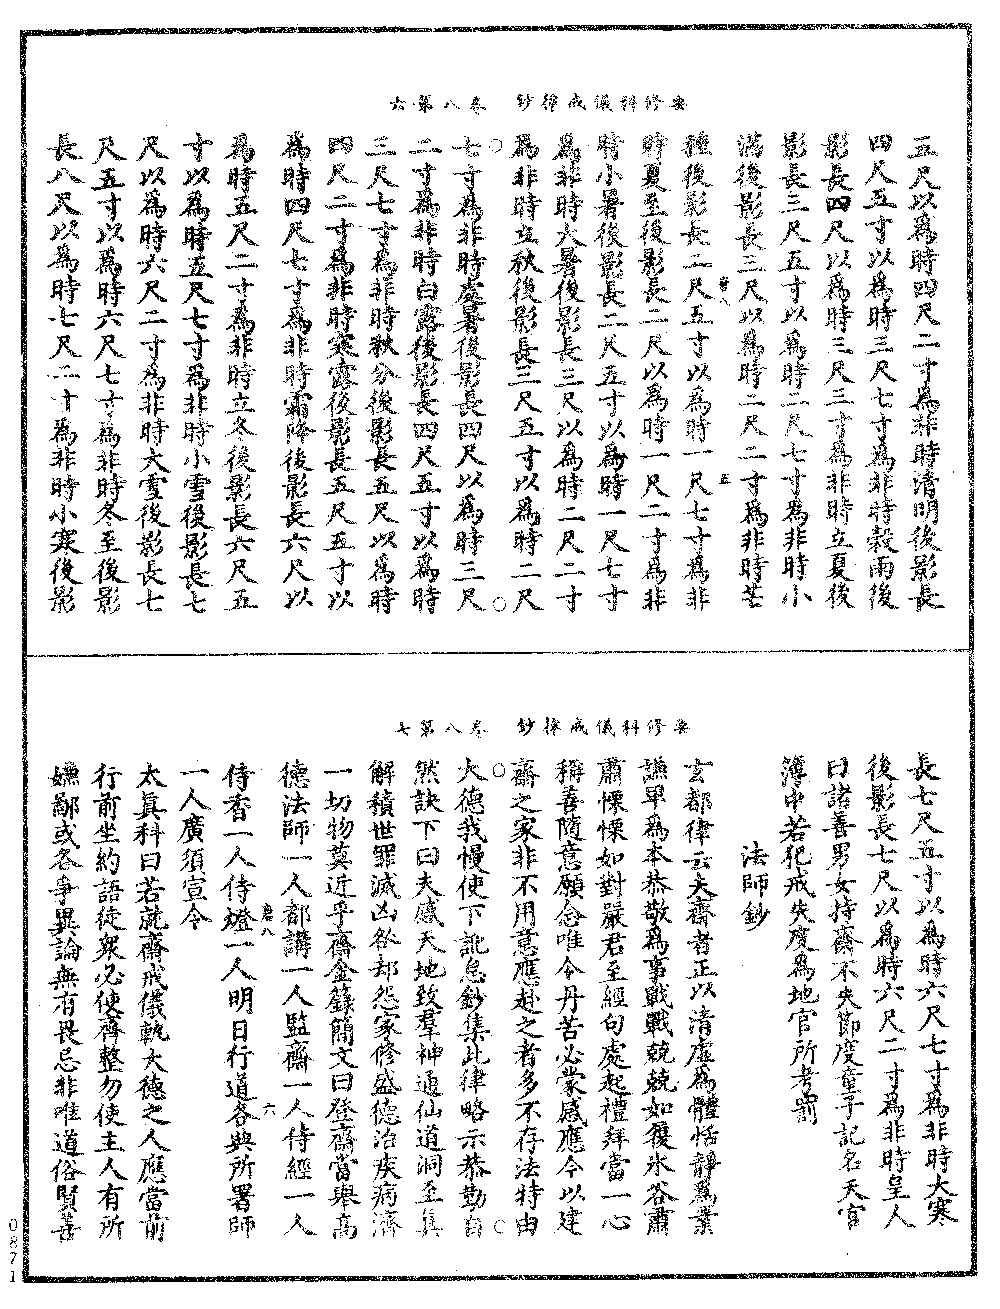 要修科儀戒律鈔　卷八第六
五尺以爲時四尺二寸爲非時清明後影長
四尺五寸以爲時三尺七寸爲非時穀雨後
影長四尺以爲時三尺三寸爲非時立夏後
影長三尺五寸以爲時二尺七寸爲非時小
滿後影長三尺以爲時二尺二寸爲非時芒
種後影長二尺五寸以爲時一尺七寸爲非
時夏至後影長二尺以爲時一尺二寸爲非
時小暑後影長二尺五寸以爲時一尺七寸
爲非時大暑後影長三尺以爲時二尺二寸
爲非時立秋後影長三尺五寸以爲時二尺
七寸爲非時處暑後影長四尺以爲時三尺
二寸爲非時白露後影長四尺五寸以爲時
三尺七寸爲非時秋分後影長五尺以爲時
四尺二寸爲非時寒露後影長五尺五寸以
爲時四尺七寸爲非時霜降後影長六尺以
爲時五尺二寸爲非時立冬後影長六尺五
寸以爲時五尺七寸爲非時小雪後影長七
尺以爲時六尺二寸爲非時大雪後影長七
尺五寸以爲時六尺七寸爲非時冬至後影
長八尺以爲時七尺二寸爲非時小寒後影
要修科儀戒律鈔　卷八第七
長七尺五寸以爲時六尺七寸爲非時大寒
後影長七尺以爲時六尺二寸爲非時皇人
曰諸善男女持齋不失節度童子記名天官
簿中若犯戒失度爲地官所考罰
法師鈔
玄都律云夫齋者正以清虛爲體恬靜爲業
謙卑爲本恭敬爲事戰戰兢兢如履冰谷肅
肅慄慄如對嚴君至經句處起禮拜當一心
稱善隨意願念唯令丹苦必蒙感應今以建
齋之家非不用意應赴之者多不存法特由
大德我慢使下訛怠鈔集此律略示恭勤自
然訣下曰夫感天地致羣神通仙道洞至眞
解積世罪滅凶咎却怨家修盛德治疾病濟
一切物莫近乎齋金籙簡文曰登齋當舉高
德法師一人都講一人監齋一人侍經一人
侍香一人侍燈一人明日行道各典所署師
一人廣須宣令
太眞科曰若就齋戒儀軌大德之人應當前
行前坐約語徒衆必使齊整勿使主人有所
嫌鄙或各爭異論無有畏忌非唯道俗賢善
0871